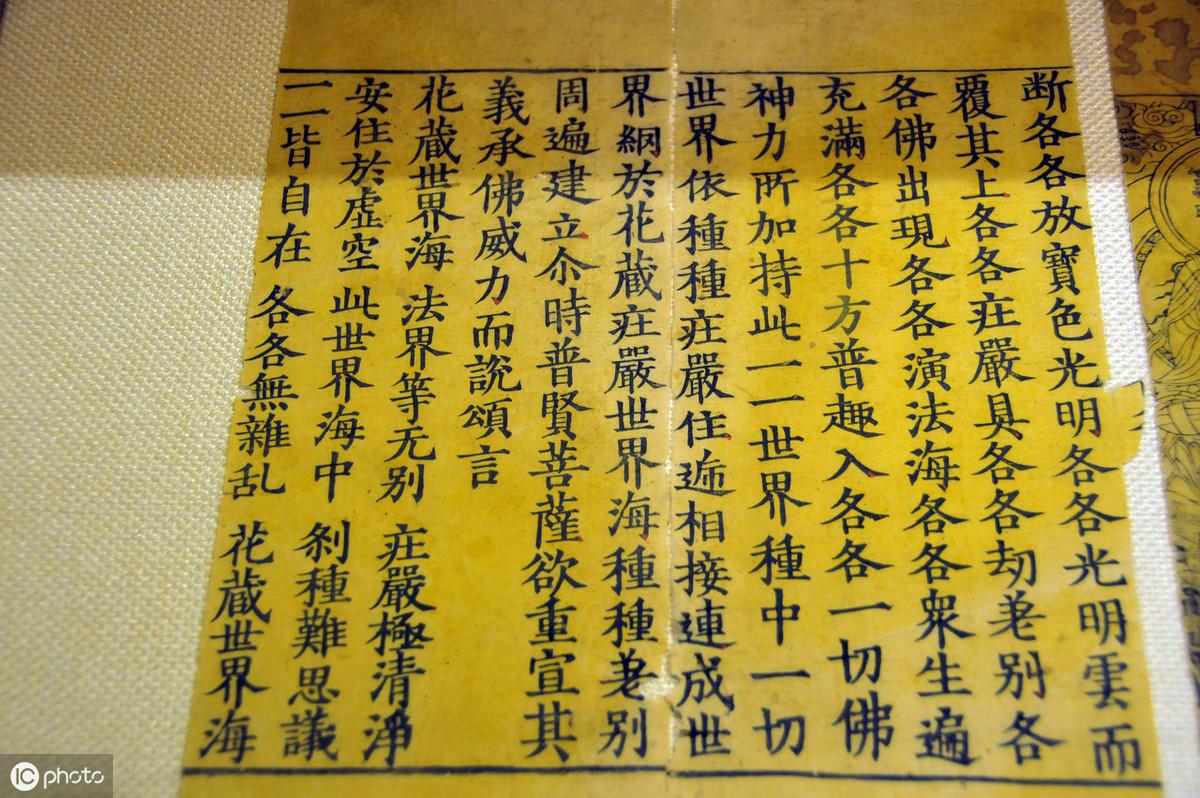 断各各放寶色光明各各光明雲而
覆其上各各庄嚴具各各劫差别各
各佛出現各各演法海各各眾生遍
充滿各各十方普趣入各各一切佛
神力所加持此一一世界種中一切
世界依種種庄嚴住遞相接連成世
界網於花藏庄嚴世界海種種差别
周遍建立尒時普賢菩薩欲重宣其
義承佛威力而說頌言
花藏世界海 法界等无别 庄嚴極清淨
安住於虛空 此世界海中 剎種難思議
一一皆自在 各各無雜乱 花藏世界海
IC photo